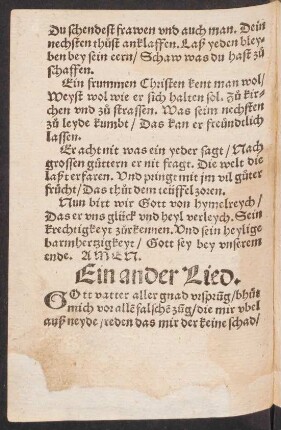 Du schendest frawen vnd auch man. Dein
nechsten thůst anklaffen. Laß yeden bley-
ben bey sein eern/ Schaw was du hast zů
schaffen.
Ein frummen Christen kent man wol/
Weyst wol wie er sich halten sol. Zů kir-
chen vnd zů strassen. Was seim nechsten
zů leyde kumbt/ Das kan er freündtlich
lassen.
Er acht nit was ein yeder sagt/ Nach
grossen güttern er nit fragt. Die welt die
laßt er faren. Vnd pringt mit jm vil gůter
frücht/ Das thůt dem teüffel zoren.
Nun bitt wir Gott von hymelreych/
Das er vns glück vnd heyl verleych. Sein
krechtigkeyt zürkennen. Vnd sein heylige
barmhertzigkeyt/ Gott sey bey vnserem
ende. AMEN.
Ein ander Lied.
GOtt vatter aller gnad vrsprüg/ bhüt
mich vor allē falschē züg/ die mir vbel
auß neyde/ reden das mir der keine schad/